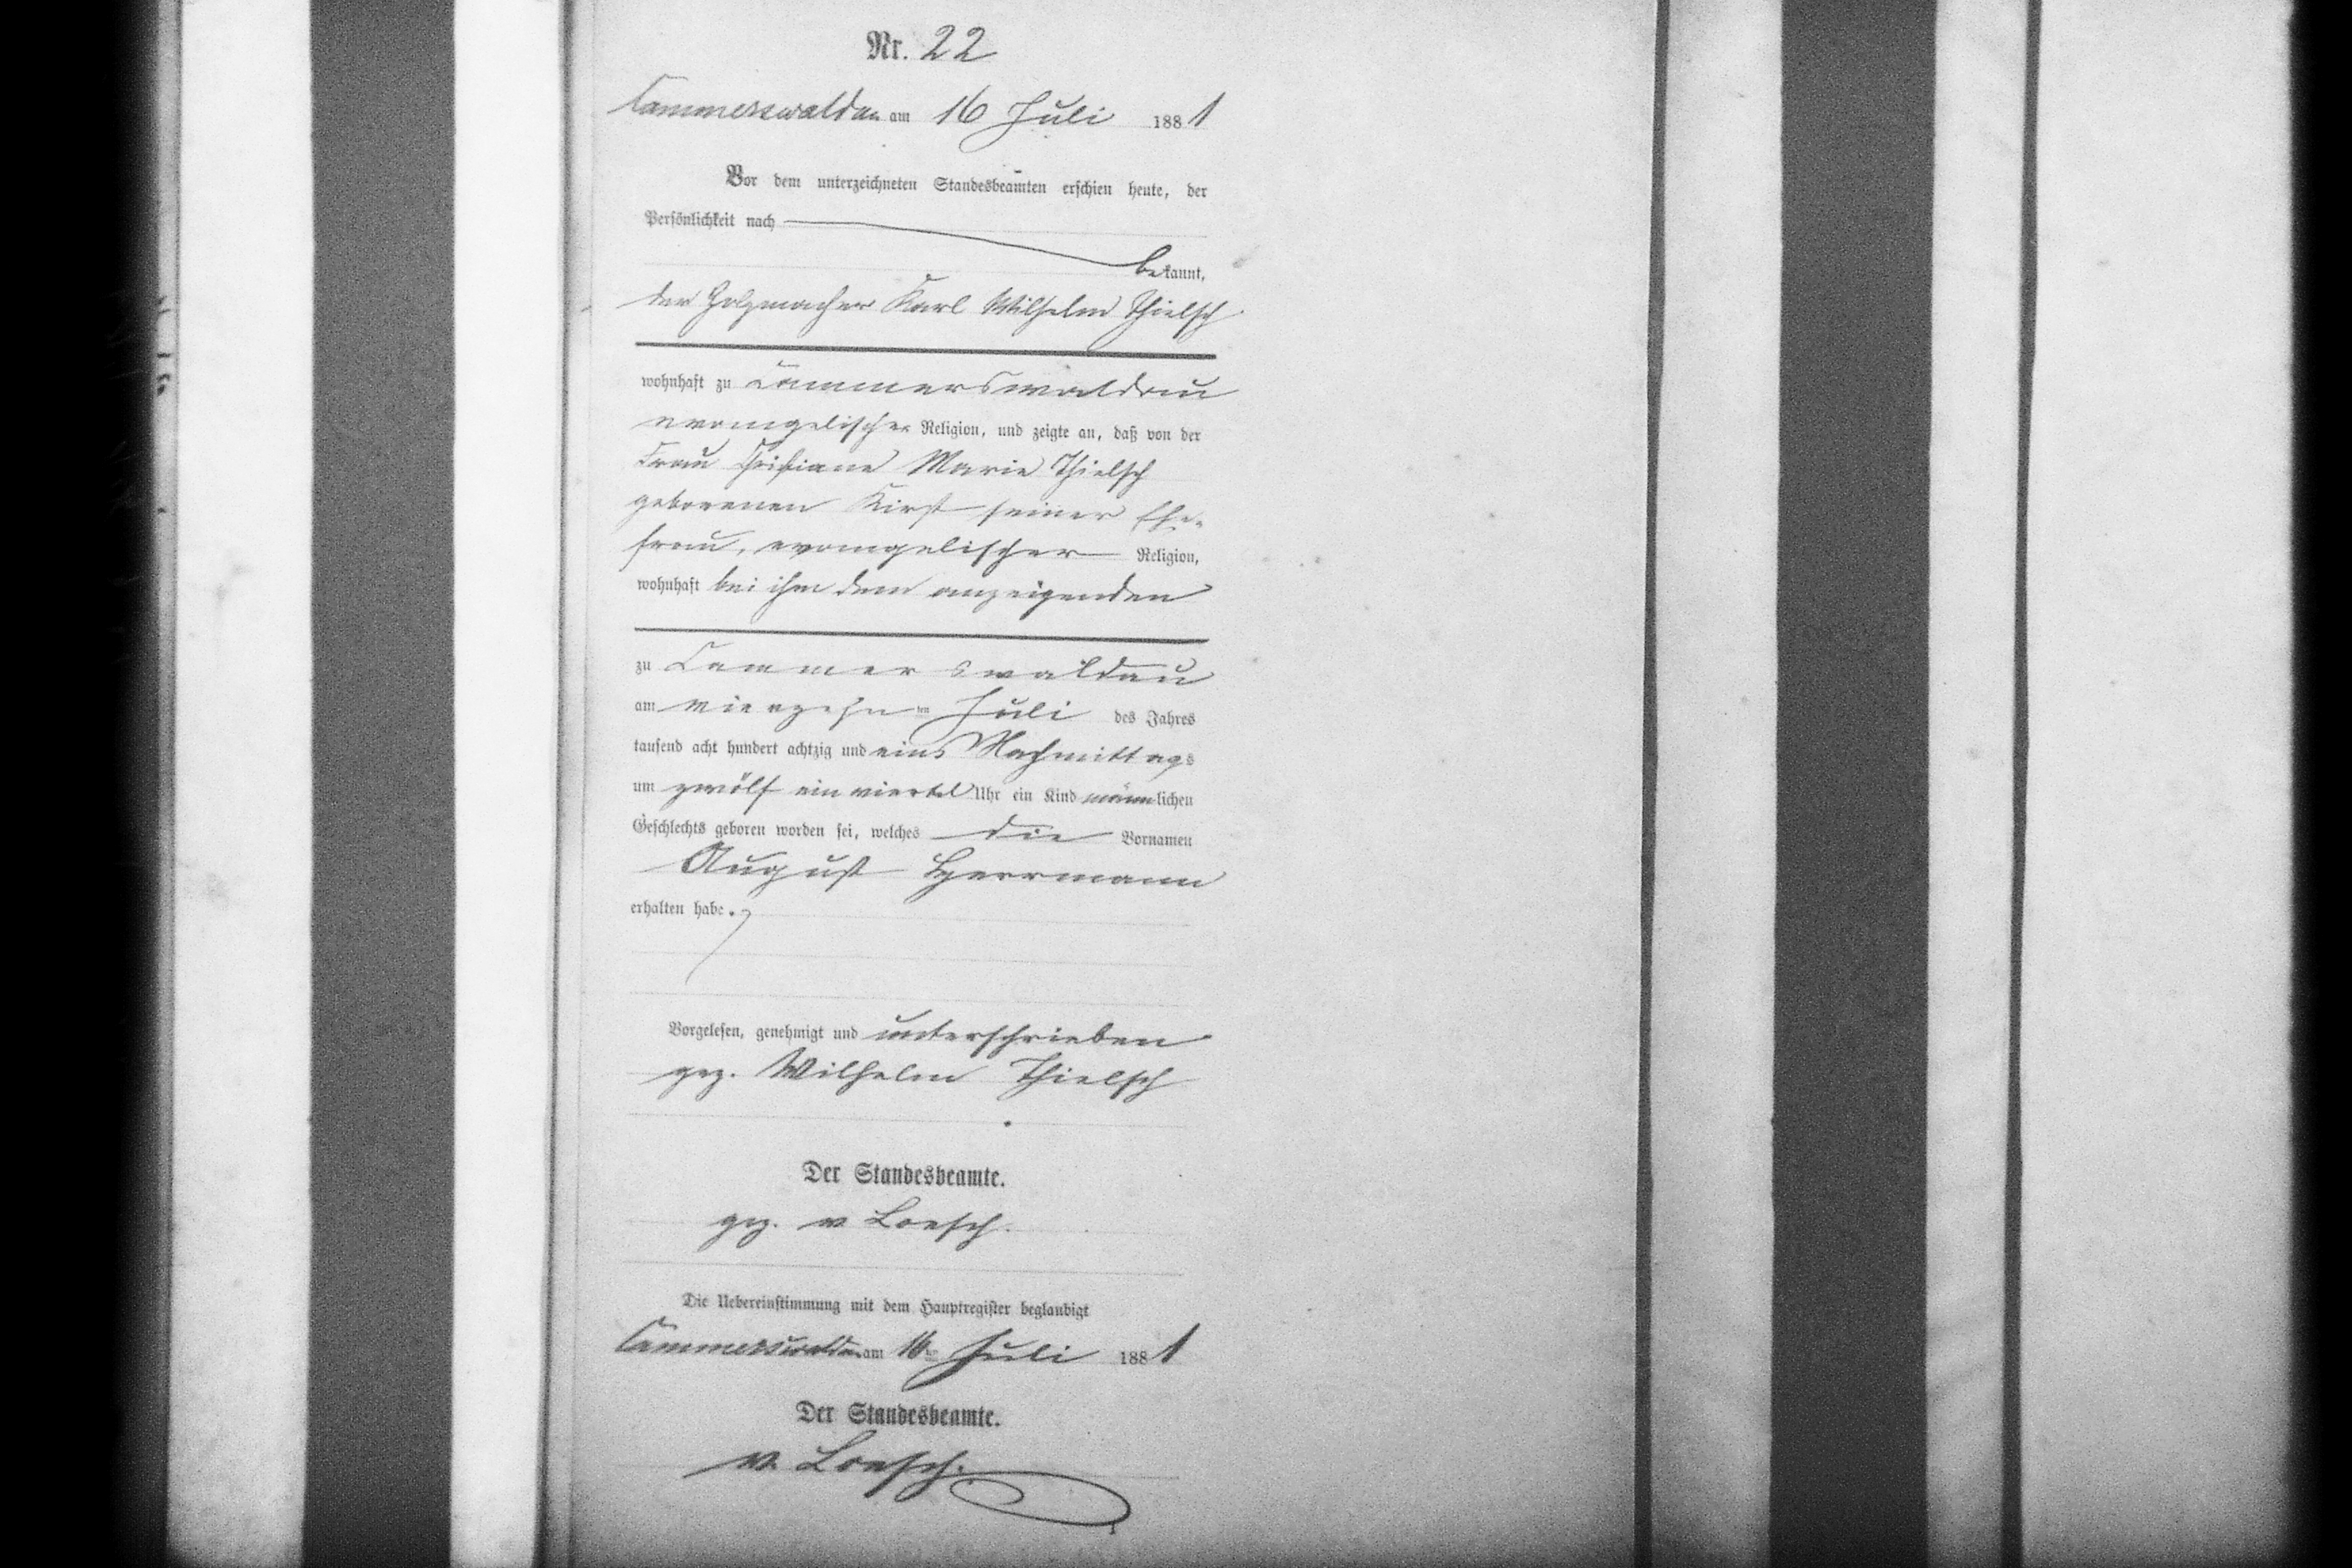 Nr. 22
Cammerswaldau am 16 Juli 1881
Vor dem unterzeichneten Standesbeamten erschien heute, der
Persönlichkeit nach
bekannt,
der Holzmacher Karl Wilhelm Thielsch
wohnhaft zu Cammerswaldau
evangelischer Religion, und zeigte an, daß von der
Frau Christiane Marie Thielsch
geborenen Kirst seiner Ehe-
frau, evangelischer Religion,
wohnhaft bei ihm dem anzeigenden
zu Cammerswaldau
am vierzehn ten Juli des Jahres
tausend acht hundert achtzig und eins Nachmittags
um zwölf ein viertel Uhr ein Kind männlichen
Geschlechts geboren worden sei, welches die Vornamen
August Herrmann
erhalten habe.
Vorgelesen, genehmigt und unterschrieben
gez. Wilhelm Thielsch
Der Standesbeamte.
gez. v Loesch.
Die Uebereinstimmung mit dem Hauptregister beglaubigt
Cammerswaldau am 16ten Juli 1881
Der Standesbeamte.
v. Loesch.